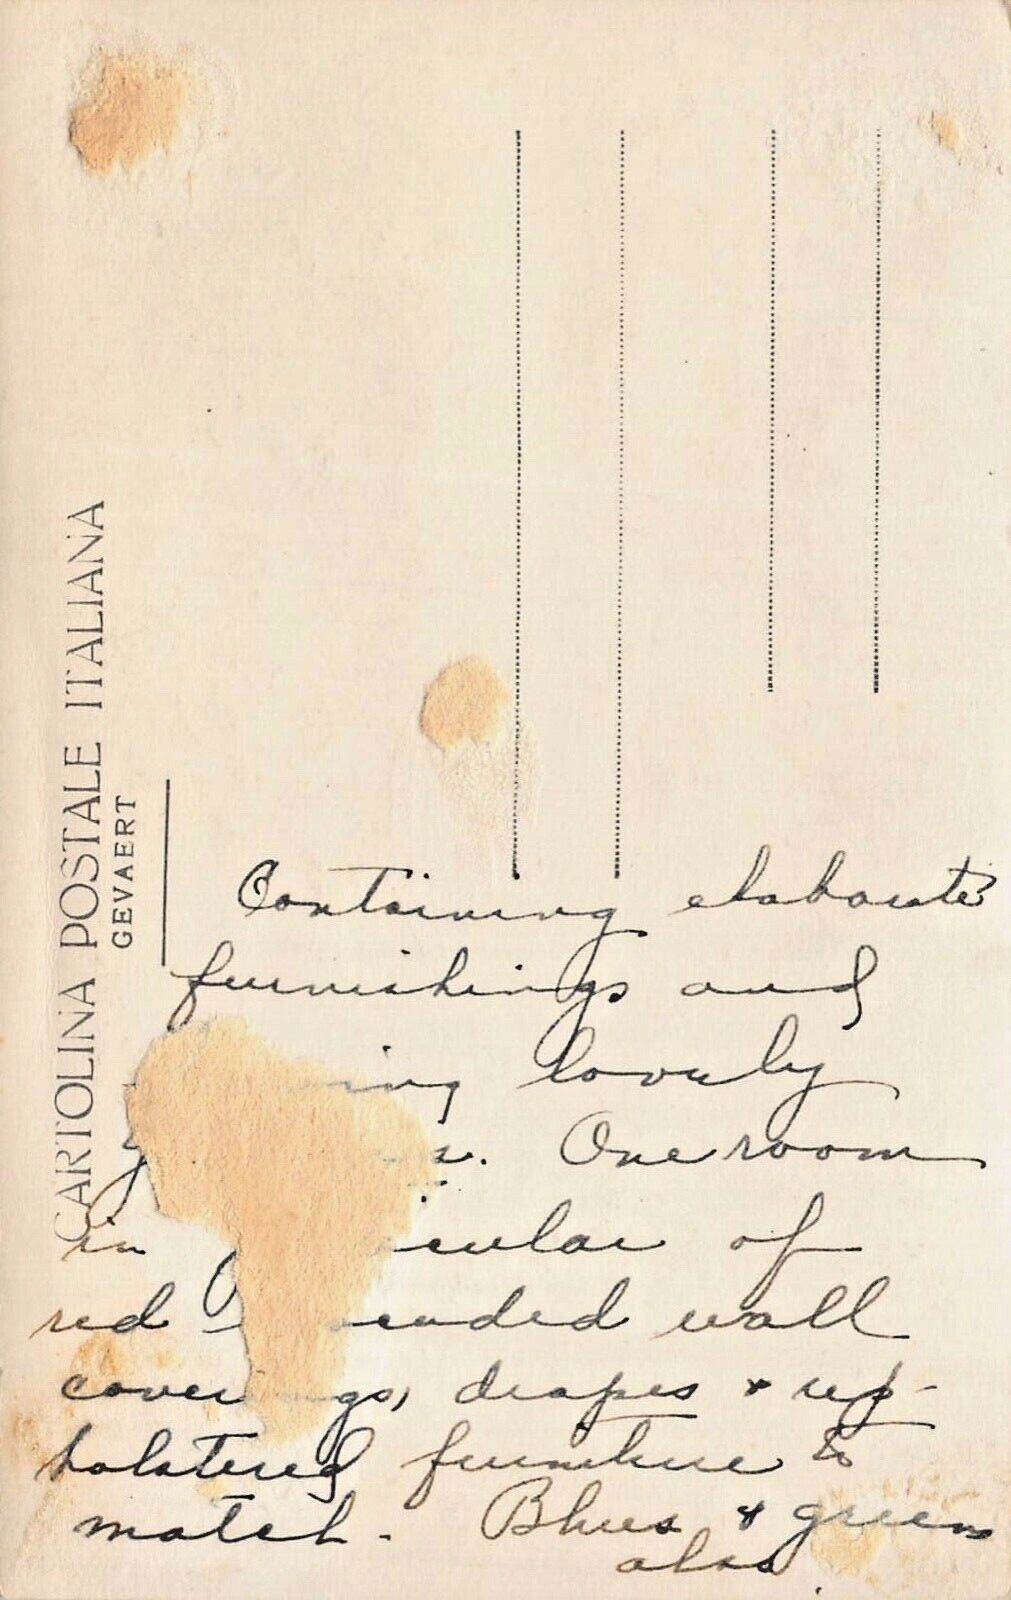 CARTOLINA POSTALE ITALIANA
GEVAERT
Containing elaborate
furnishings and
lovely
One room
in of
red wall
drapes + up-
holstered furniture to
match. Blues + greens
also.